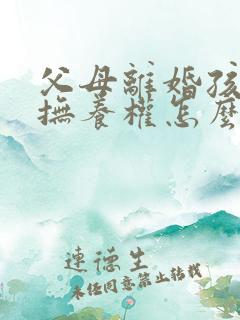 父母離婚孩
撫養權怎麼
連德生
未经同意禁止转载